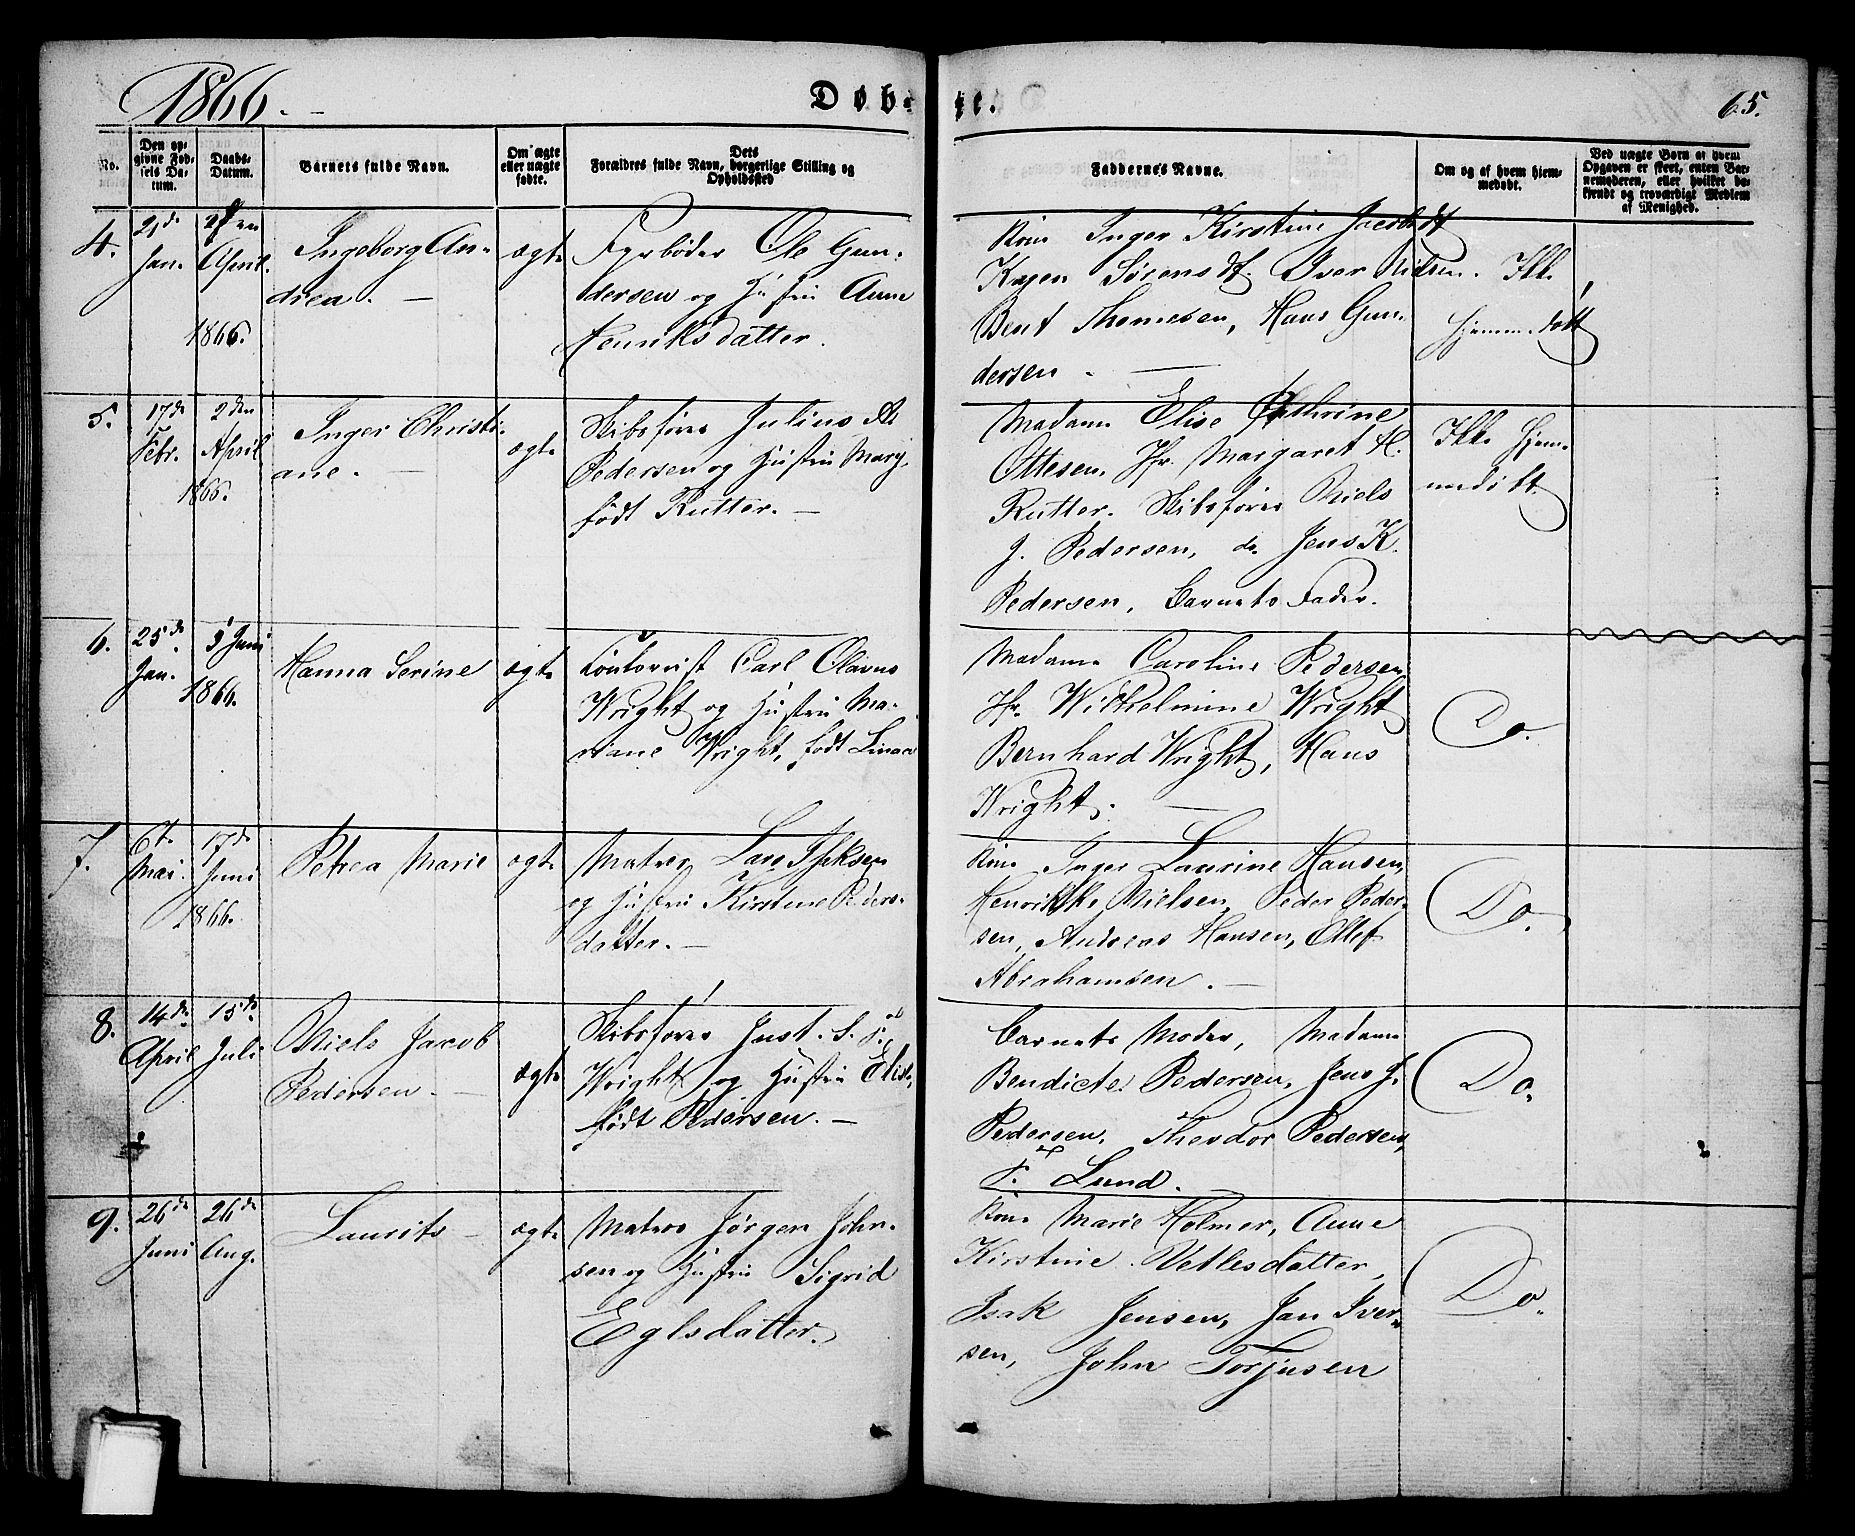 1866.
Døbte.
65.
No.
Den op-
givne Fød-
sels Da-
tum.
Daabs-
Datum.
Barnets fulde Navn.
Om ægte
eller uægte
fødte.
Dets
Forældres fulde Navn, borgerlige Stilling og
Opholdsted
Faddernes Navne.
Om og af hvem hjem-
medøbt.
Ved uægte Børn af hvem
Opgaven er skeet, enten Bar-
nemoderen, eller hvilket be-
kjendt og troværdigt Medlem
af Menighed.
4.
2den
Jan.
April
1866.
Ingeborg An-
drea. —
ægte
Fyrbøder Ole Gun-
dersen og Hustru Anne
Henriksdatter.
Kone Inger Kirstine Jacobsdt
Kagen Sørensdt. Iver Nilsen.
Bent Thomesen, Hans Gun-
dersen. —
Ikke
hjemmedøbt
5.
17de
Febr.
2den
April
1866.
Inger Christi-
ane. —
ægte
Skibsfører Julius A.
Pedersen og Hustru Mary,
født Rutter. —
Madame Elise Cathrine
Ottesen, Jfr. Margaret H.
Rutter. Skibsfører Niels
J. Pedersen, do Jens K.
Pedersen, Barnets Fader.
Ikke hjem-
medøbt.
6.
25de
Jan.
3 Juni
1866.
Hanna Serine
ægte
Contorist Carl Olavus
Wright og Hustru Ma-
riane Wright, født Linaae
Madame Caroline Pedersen
Jfr. Wilhelmine Wright
Bernhard Wright, Hans
Wright. —
Do.
7.
6te
Mai.
17de
Juni
1866.
Petrea Marie
ægte
Matros Lars Isaksen
og Hustru Kirstine Peders-
datter. —
Kone Inger Laurine Hansen,
Henrikke Nielsen, Peder Peder-
sen, Andreas Hansen, Ellef
Abrahamsen. —
Do.
8.
14de
April
15de
Juli
Niels Jacob
Pedersen. —
ægte
Skibsfører Just. S. F.
Wright og Hustru Elise,
født Pedersen. —
Barnets Moder, Madame
Bendicte Pedersen, Jens J.
Pedersen, Theodor Pedersen,
F. Lund.
Do.
9.
26de
Juni
26de
Aug.
Laurits —
ægte
Matros Jørgen John-
sen og Hustru Sigrid
Eglsdatter.
Kone Marie Holmer, Anne
Kirstine Vetlesdatter,
Isak Jensen, Jan Iver-
sen, John Torjusen
Do.